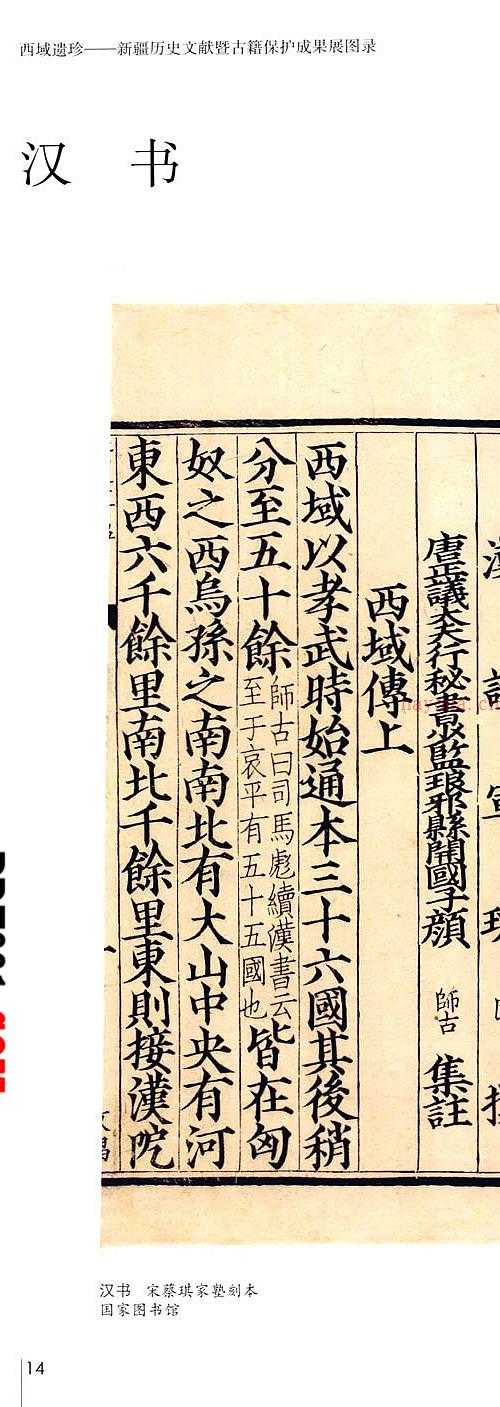 西域遗珍——新疆历史文献暨古籍保护成果展图录
汉 书
唐正議大夫行秘書少監琅邪縣開國子顏 師古 集註
西域傳上
西域以孝武時始通本三十六國其後稍
分至五十餘師古曰司馬彪續漢書云至于哀平有五十五國也皆在匈
奴之西烏孫之南南北有大山中央有河
東西六千餘里南北千餘里東則接漢阸
汉书 宋蔡琪家塾刻本
国家图书馆
14